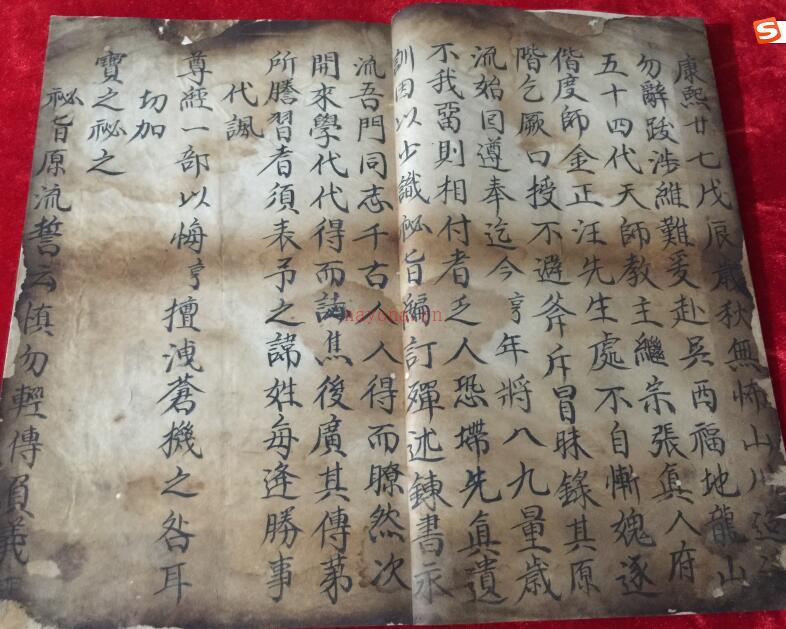 康熙廿七戊辰歲秋無怖山川
勿辭跋涉維難爰赴吳西福地龍山
五十四代天師教主繼宗張真人府
偕度師金正汪先生處不自慚媿逐
階乞厥口授不避斧斥冒昧錄其原
流始回遵奉迄今享年將八九量歲
不我畱則相付者乏人恐墆先真遺
訓因以少識祕旨編訂殫述鍊書示
流吾門同志千古人人得而瞭然次
開來學代代得而誦焦後廣其傳苐
所謄習者須表予之諱姓每逢勝事
代諷
尊經一部以悔亨擅洩蒼機之咎耳
切加
寶之祕之
祕旨原流誓云慎勿輕傳負義
hayong.cn
S